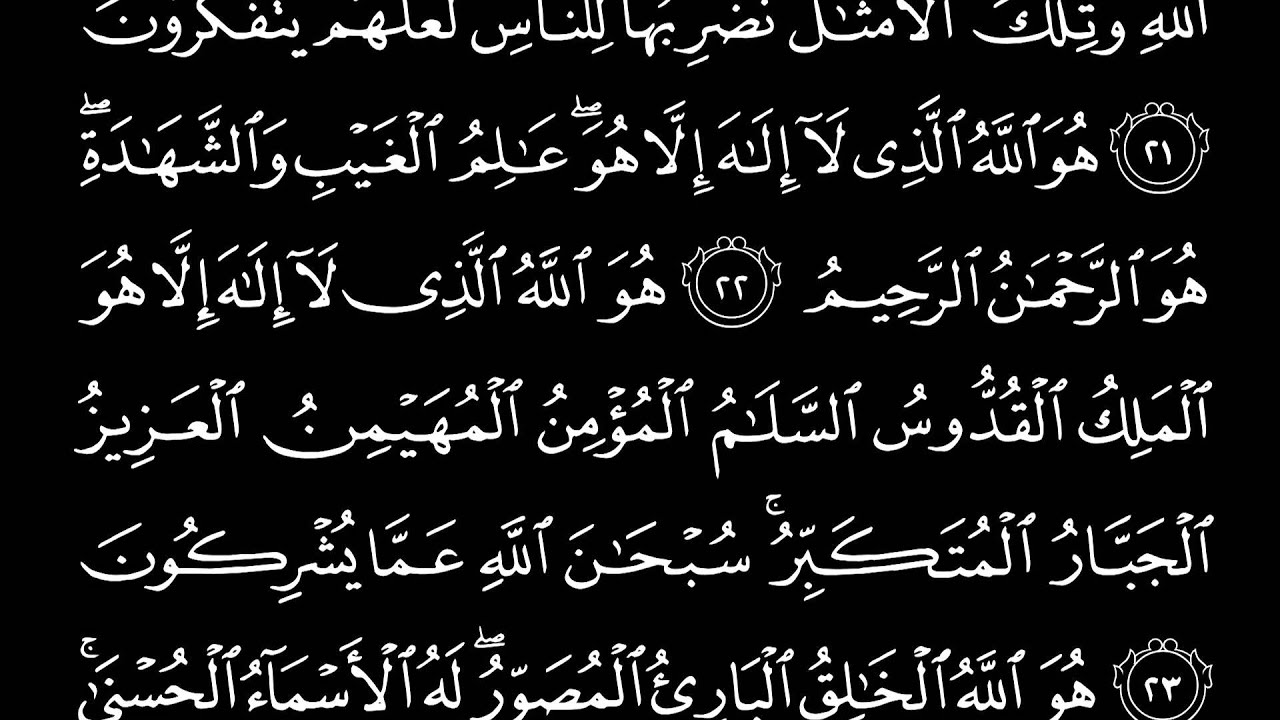 ٱللَّهِ وَتِلْكَ ٱلْأَمْثَـٰلُ نَضْرِبُهَا لِلنَّاسِ لَعَلَّهُمْ يَتَفَكَّرُونَ
٢١ هُوَ ٱللَّهُ ٱلَّذِى لَآ إِلَـٰهَ إِلَّا هُوَ ۖ عَـٰلِمُ ٱلْغَيْبِ وَٱلشَّهَـٰدَةِ ۖ
هُوَ ٱلرَّحْمَـٰنُ ٱلرَّحِيمُ ٢٢ هُوَ ٱللَّهُ ٱلَّذِى لَآ إِلَـٰهَ إِلَّا هُوَ
ٱلْمَلِكُ ٱلْقُدُّوسُ ٱلسَّلَـٰمُ ٱلْمُؤْمِنُ ٱلْمُهَيْمِنُ ٱلْعَزِيزُ
ٱلْجَبَّارُ ٱلْمُتَكَبِّرُ ۚ سُبْحَـٰنَ ٱللَّهِ عَمَّا يُشْرِكُونَ
٢٣ هُوَ ٱللَّهُ ٱلْخَـٰلِقُ ٱلْبَارِئُ ٱلْمُصَوِّرُ ۖ لَهُ ٱلْأَسْمَآءُ ٱلْحُسْنَىٰ ۚ